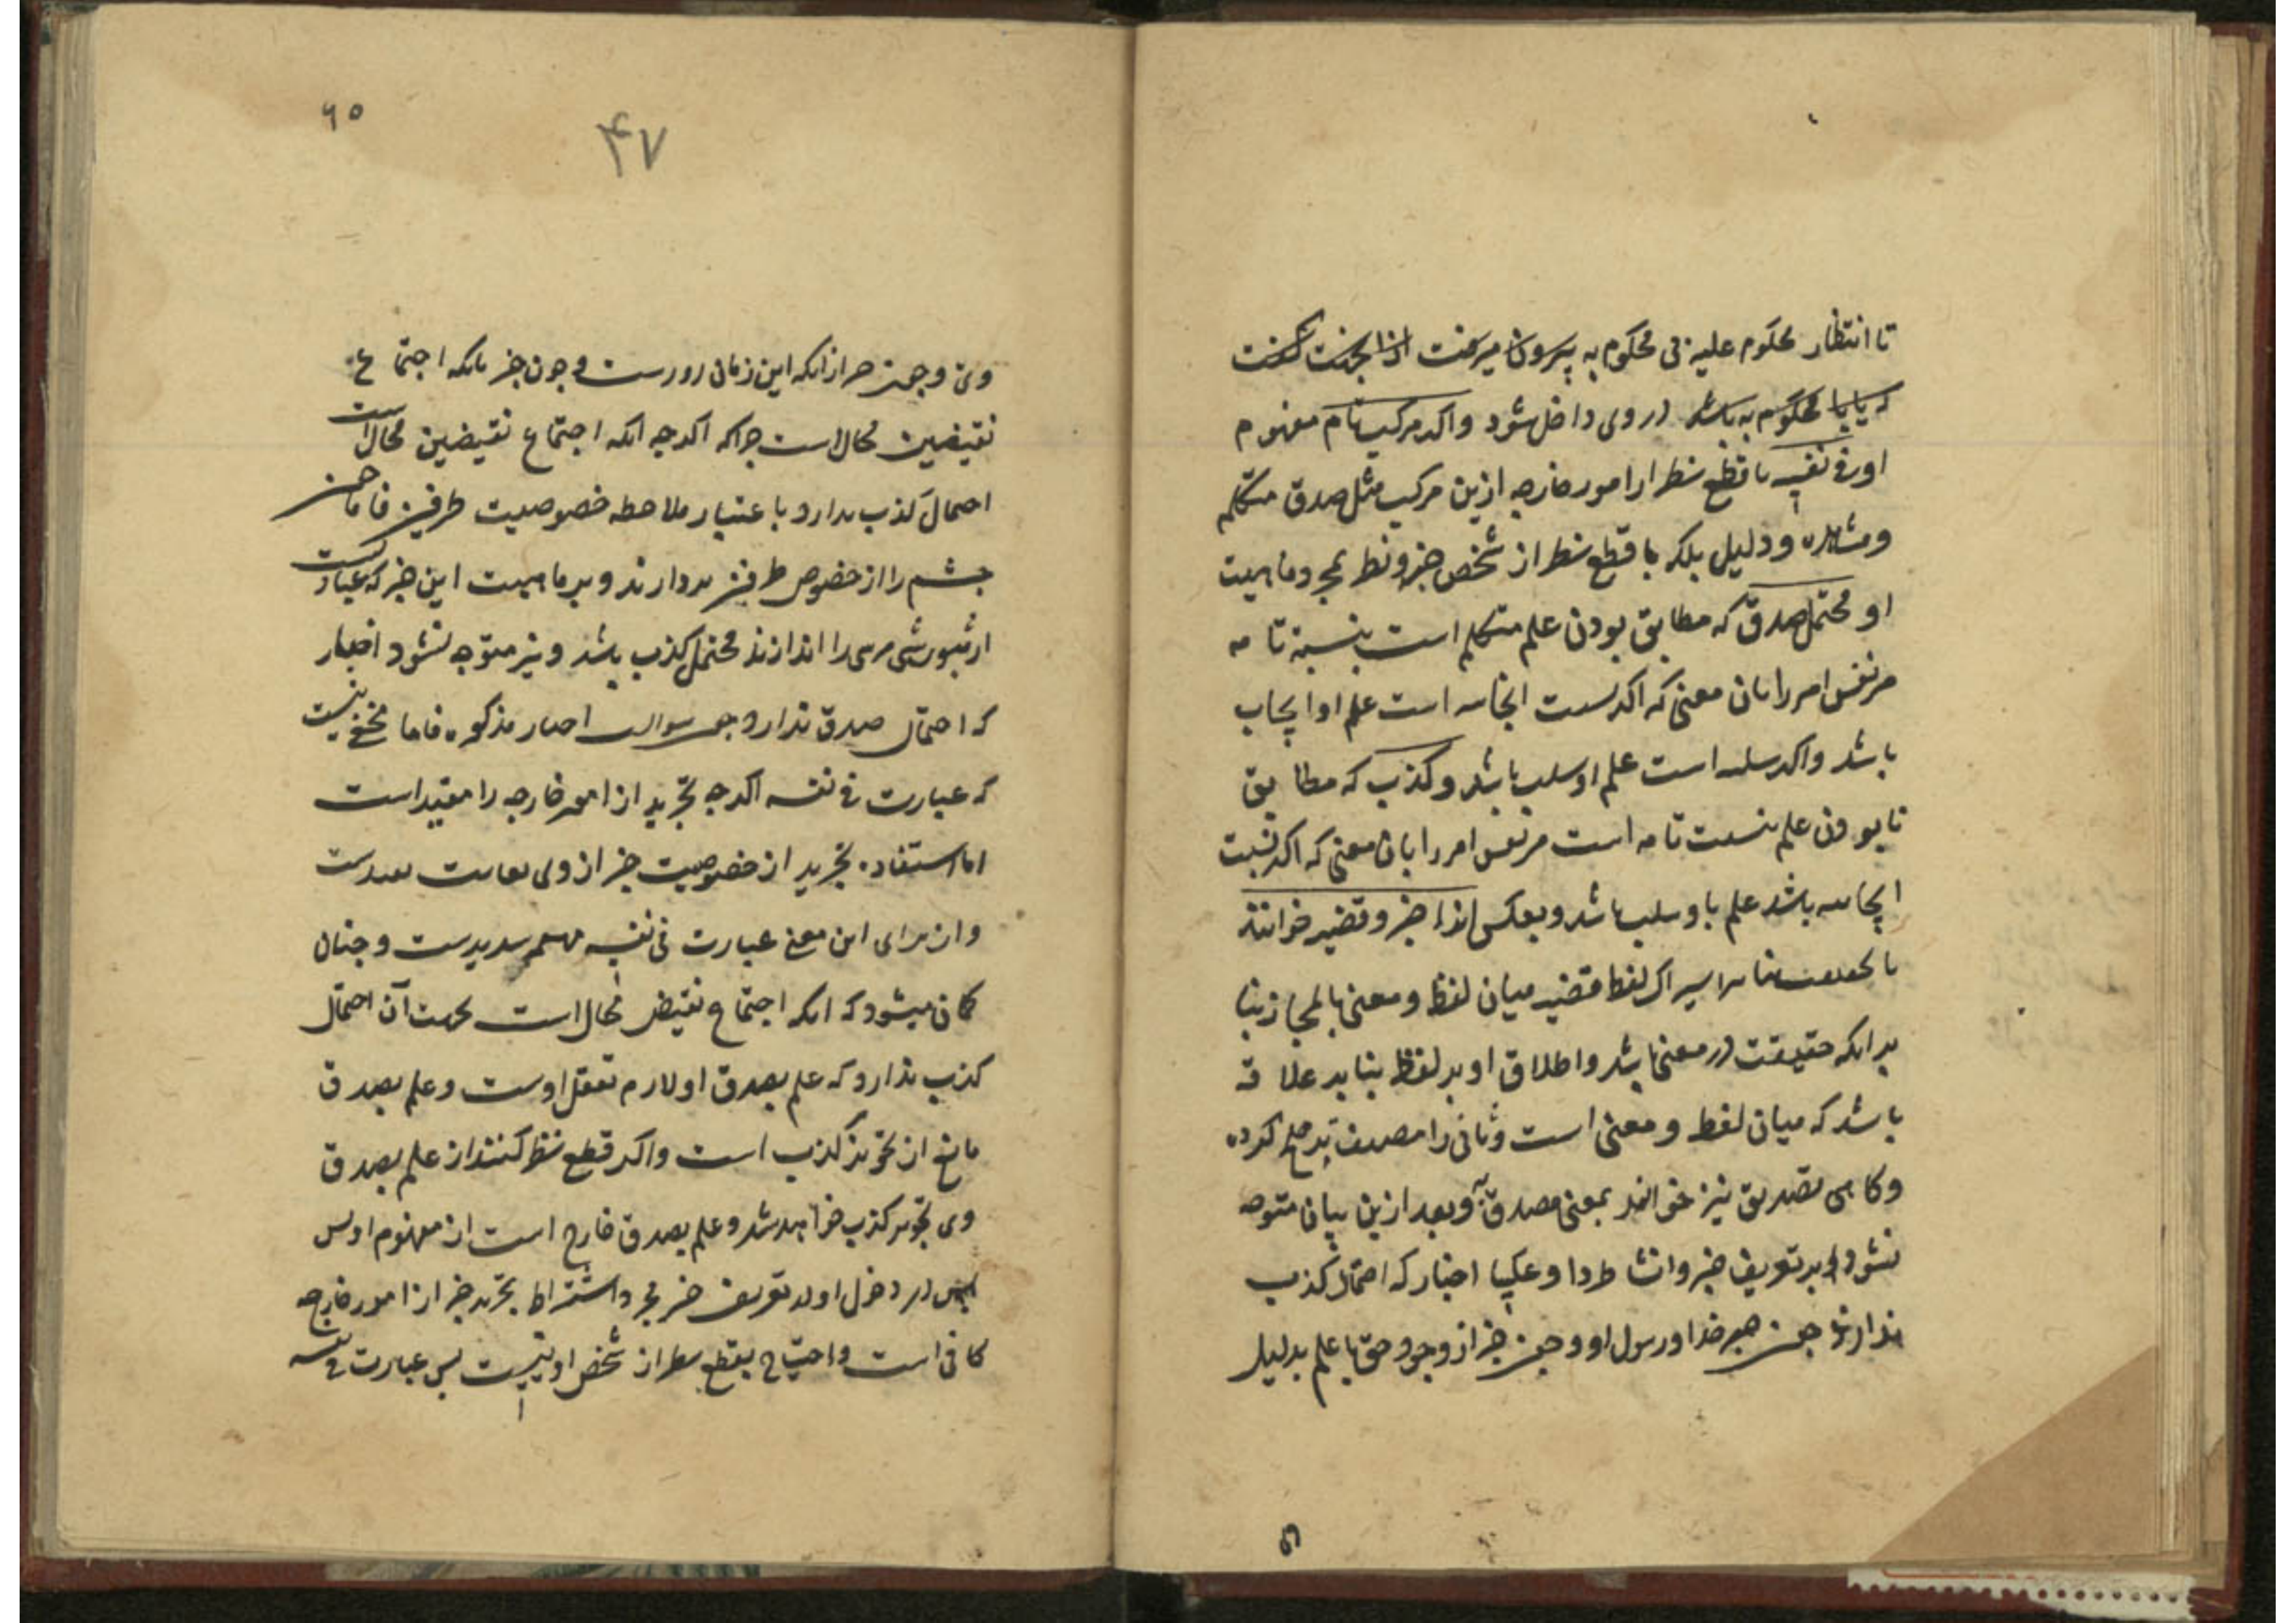 تا انتظار محکوم علیه فی محکوم به بیرون میرفت لذا بجهت گفت
که یا یا محکوم به باشد در وی داخل شود و اکر مرکب تام مفهوم
او فی نفسه با قطع نظر از امور خارجه ازین مرکب مثل صدق متکلم
و مشاهده و دلیل بلکه با قطع نظر از شخص خبر و نظر بمجرد ماهیت
او محتمل صدق که مطابق بودن علم متکلم است بنسبة تامه
مر نفس امر را بان معنی که اکر نسبت ایجابیه است علم او ایجاب
باشد و اکر سلبیه است علم او سلب باشد و کذب که مطابق
نابودن علم بنسبت تامه است مر نفس امر را بان معنی که اکر نسبت
ایجابیه باشد علم باو سلب باشد و بعکس لذا خبر و قضیه خوانند
اشتراک لفظ قضیه میان لفظ و معنی یا بالمجاز بنا
بر انکه حقیقت در معنی باشد و اطلاق او بر لفظ بنا بر علاقه
باشد که میان لفظ و معنی است و ثانی را مصنف ترجیح کرده
و کاهی تصدیق نیز خوانند بمعنی مصدق به و بعد ازین بیان متوجه
نشود بر تعریف خبر و انشا طردا و عکسا اخبار که احتمال کذب
ندارند چون خبر خدا و رسول او و چون خبر از وجود حق با علم بدلیل
۴۷
۶۵
وی و چون خبر از انکه این زمان روزست و چون خبر بانکه اجتماع
نقیضین محال است چرا که اکرچه انکه اجتماع نقیضین محال است
احتمال کذب ندارد باعتبار ملاحظه خصوصیت طرفین فاما چون
چشم را از خصوص طرفین بردارند و بر ماهیت این خبر که عبارتست
از ثبوت شی مر شی را اندازند محتمل کذب باشد و نیز متوجه نشود اخبار
که احتمال صدق ندارد چون سوالب اخبار مذکوره فاما مخفی نیست
که عبارت فی نفسه اکرچه تجرید از امور خارجه را مفید است
اما استفاده تجرید از خصوصیت خبر از وی بغایت بعیدست
و از برای این معنی عبارت فی نفسه
کمان میشود که انکه اجتماع نقیض محال است بجهت آن احتمال
کذب ندارد که علم بصدق او لازم تعقل اوست و علم بصدق
مانع از تجویز کذب است و اکر قطع نظر کنند از علم بصدق
وی تجویز کذب خواهد شد و علم بصدق خارج است از مفهوم او پس
در دخول او در تعریف خبر مجرد اشتراط تجرید خبر از امور خارجه
کافی است و احتیاج بقطع نظر از شخص او نیست پس عبارت فی نفسه